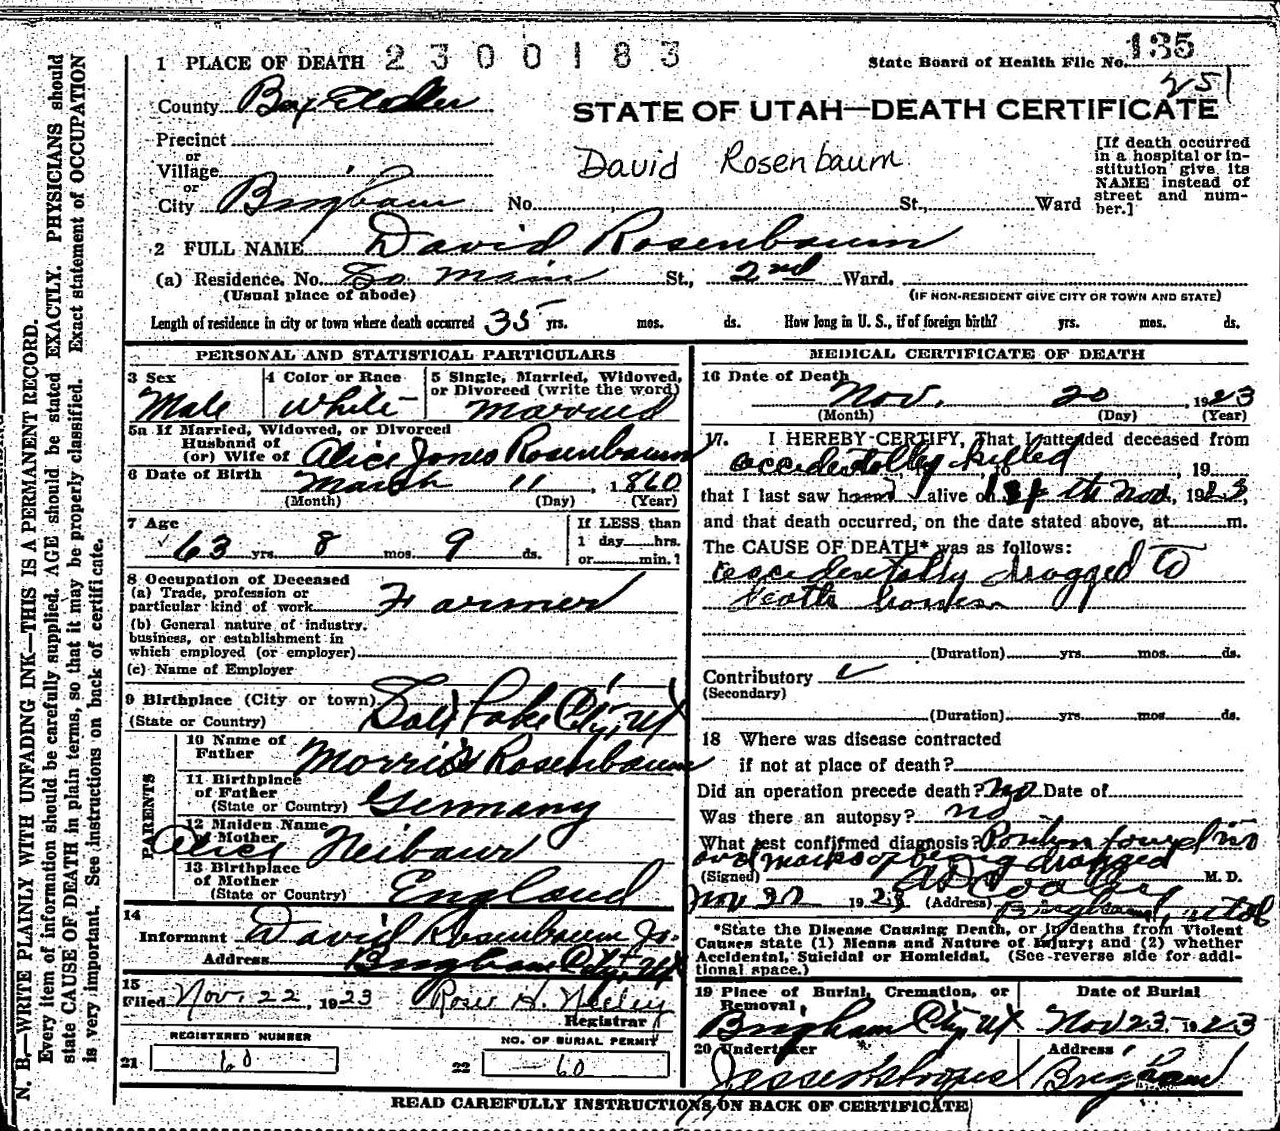 1 PLACE OF DEATH 2300183
State Board of Health File No. 135
251
County Box Elder
STATE OF UTAH—DEATH CERTIFICATE
Precinct
or
Village
or
City Brigham
David Rosenbaum
No. St., Ward
[If death occurred
in a hospital or in-
stitution give its
NAME instead of
street and num-
ber.]
2 FULL NAME David Rosenbaum
(a) Residence, No. So Main St., 2nd Ward.
(Usual place of abode)
(IF NON-RESIDENT GIVE CITY OR TOWN AND STATE)
Length of residence in city or town where death occurred 35 yrs. mos. ds. How long in U. S., if of foreign birth? yrs. mos. ds.
PERSONAL AND STATISTICAL PARTICULARS
3 Sex
Male
4 Color or Race
White
5 Single, Married, Widowed,
or Divorced (write the word)
Married
5a If Married, Widowed, or Divorced
Husband of
(or) Wife of Alice Jones Rosenbaum
6 Date of Birth March 11, 1860
(Month) (Day) (Year)
7 Age
63 yrs. 8 mos. 9 ds.
If LESS than
1 day hrs.
or min.?
8 Occupation of Deceased
(a) Trade, profession or
particular kind of work Farmer
(b) General nature of industry,
business, or establishment in
which employed (or employer)
(c) Name of Employer
9 Birthplace (City or town) Salt Lake City, Ut
(State or Country)
PARENTS
10 Name of
Father Morris Rosenbaum
11 Birthplace
of Father
(State or Country) Germany
12 Maiden Name
of Mother
Alice Neibaur
13 Birthplace
of Mother
(State or Country) England
14
Informant David Rosenbaum Jr.
Address Brigham City, Ut
15
Filed Nov. 22, 1923 H. Neeley
Registrar
REGISTERED NUMBER
21 60
NO. OF BURIAL PERMIT
22 60
MEDICAL CERTIFICATE OF DEATH
16 Date of Death
Nov. 20, 1923
(Month) (Day) (Year)
17. I HEREBY CERTIFY, That I attended deceased from
accidentally killed, 19
that I last saw h alive on th Nov, 1923
and that death occurred, on the date stated above, at m.
The CAUSE OF DEATH* was as follows:
accidentally dragged to
death
(Duration) yrs. mos. ds.
Contributory
(Secondary)
(Duration) yrs. mos. ds.
18 Where was disease contracted
if not at place of death?
Did an operation precede death? no Date of
Was there an autopsy? no
What test confirmed diagnosis? found in
and marks of being dragged
(Signed) M. D.
Nov 22 1923 (Address) Brigham, Utah
*State the Disease Causing Death, or in deaths from Violent
Causes state (1) Means and Nature of Injury; and (2) whether
Accidental, Suicidal or Homicidal. (See reverse side for addi-
tional space.)
19 Place of Burial, Cremation, or
Removal,
Brigham City, Ut
Date of Burial
Nov 23 1923
20 Undertaker
Address
Brigham
READ CAREFULLY INSTRUCTIONS ON BACK OF CERTIFICATE
N. B.—WRITE PLAINLY WITH UNFADING INK—THIS IS A PERMANENT RECORD.
Every item of information should be carefully supplied. AGE should be stated EXACTLY. PHYSICIANS should
state CAUSE OF DEATH in plain terms, so that it may be properly classified. Exact statement of OCCUPATION
is very important. See instructions on back of certificate.